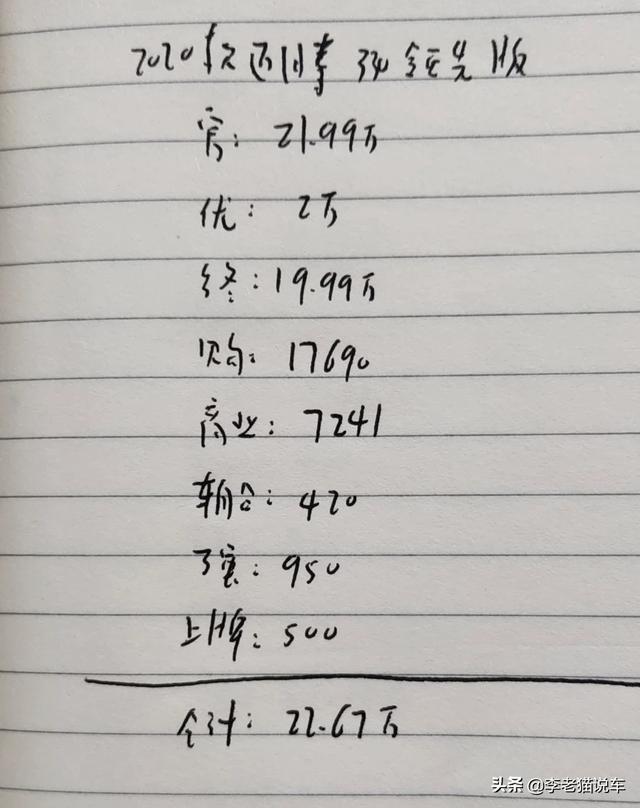 2020款迈腾 330 领先版
官：21.99万
优：2万
终：19.99万
购：17690
商业：7241
车船：420
：950
上牌：500
合计：22.67万
头条 @李老猫说车